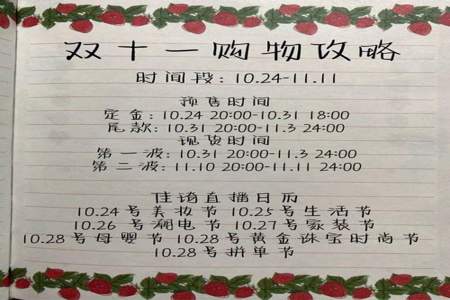 双十一购物攻略
时间段：10.24-11.11
预售时间
定金：10.24 20:00-10.31 18:00
尾款：10.31 20:00-11.3 24:00
现货时间
第一波：10.31 20:00-11.3 24:00
第二波：11.10 20:00-11.11 24:00
佳琦直播日历
10.24号美妆节 10.25号生活节
10.26号潮电节 10.27号家装节
10.28号母婴节 10.28号黄金珠宝时尚节
10.28号拼单节